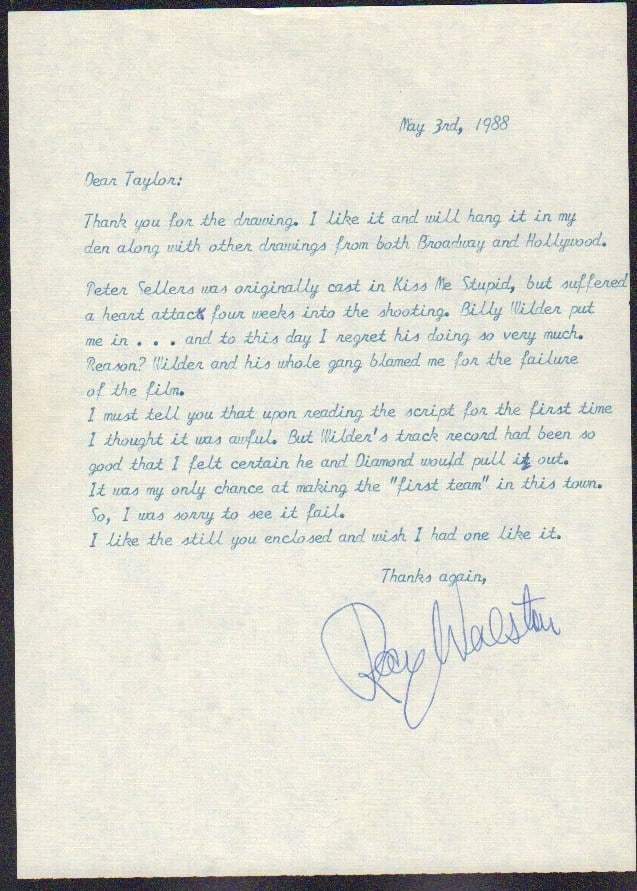 May 3rd, 1988
Dear Taylor:
Thank you for the drawing. I like it and will hang it in my
den along with other drawings from both Broadway and Hollywood.
Peter Sellers was originally cast in Kiss Me Stupid, but suffered
a heart attack four weeks into the shooting. Billy Wilder put
me in . . . and to this day I regret his doing so very much.
Reason? Wilder and his whole gang blamed me for the failure
of the film.
I must tell you that upon reading the script for the first time
I thought it was awful. But Wilder's track record had been so
good that I felt certain he and Diamond would pull it out.
It was my only chance at making the "first team" in this town.
So, I was sorry to see it fail.
I like the still you enclosed and wish I had one like it.
Thanks again,
Ray Walston